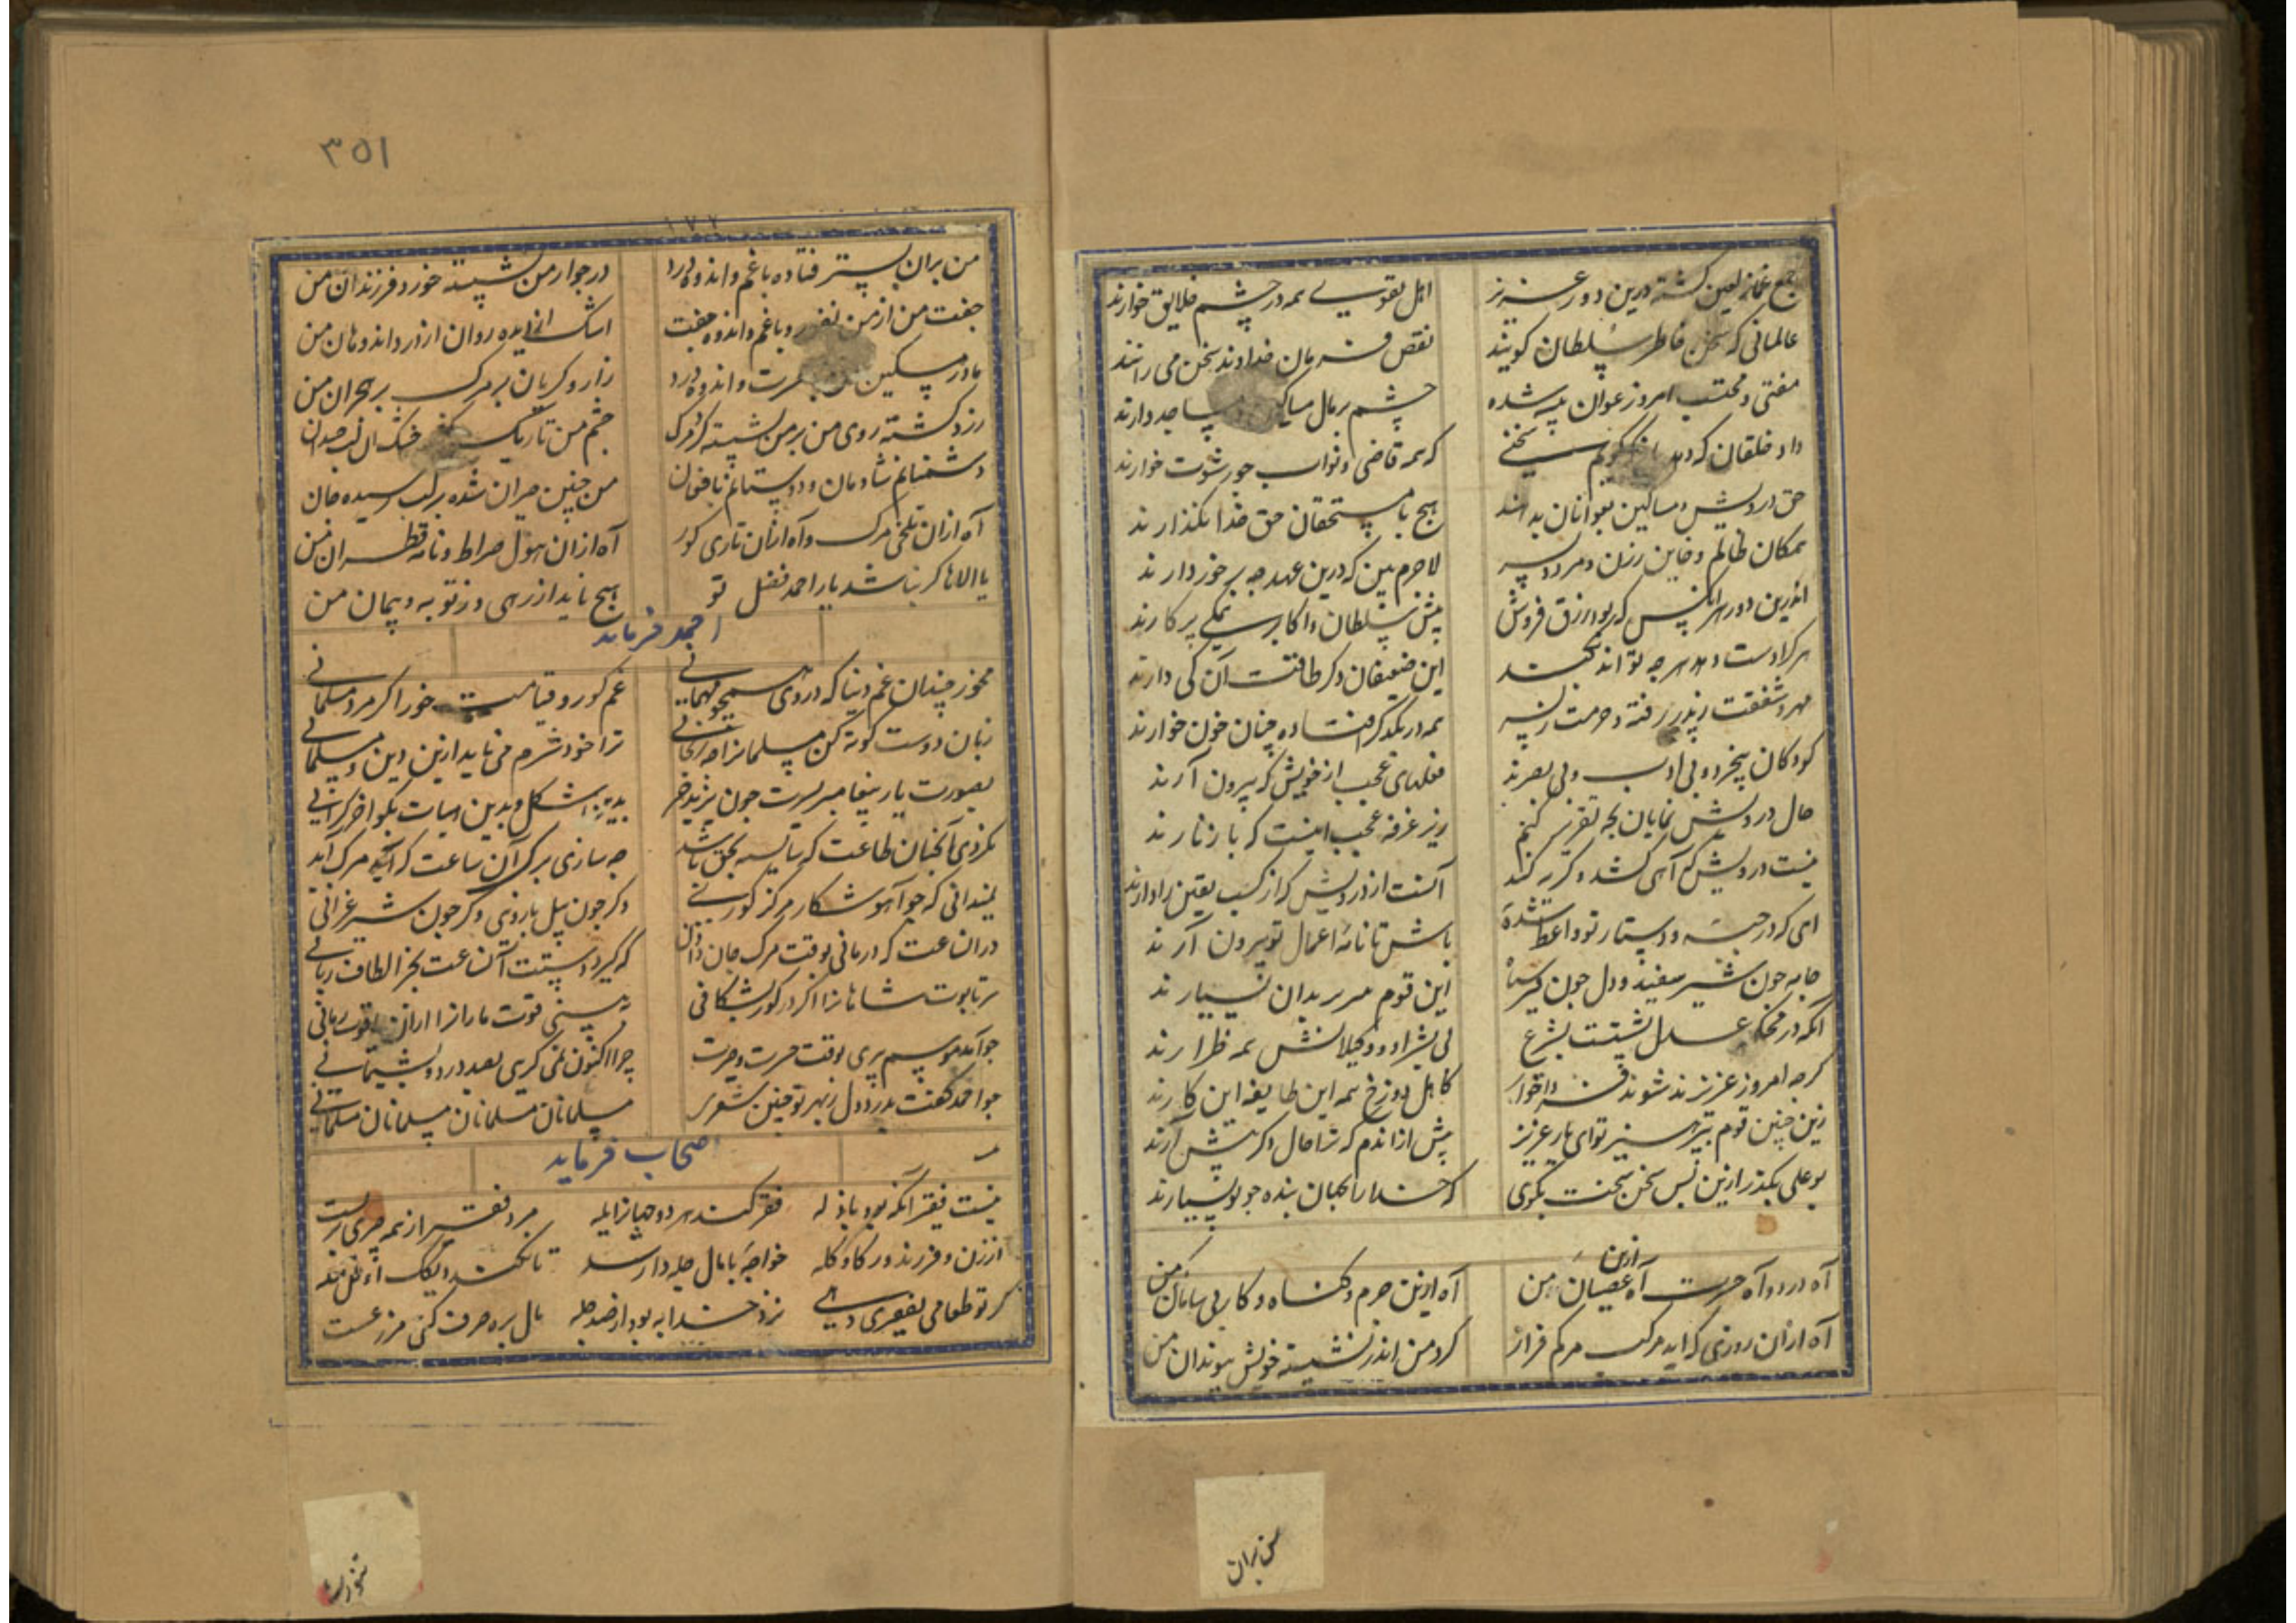 جمع غماز لعین گشته درین دور عزیز
اهل تقوی همه در چشم خلایق خوارند
عالمانی که سخن خاطر سلطان گویند
نقض فرمان خداوند سخن می رانند
مفتی و محتسب امروز عوان پیشه شده
چشم بر مال مساکین مساجد دارند
داد خلقان که دهد سخنی
که همه قاضی و نواب چو رشوت خوارند
حق درویش و مساکین بعوانان بدهند
هیچ با مستحقان حق خدا نگذارند
همکان ظالم و خاین ز زن و مرد و پسر
لاجرم بین که درین عهد چه برخوردارند
اندرین دور هر انکس که بود زرق فروش
پیش سلطان و اکابر همکی پرکارند
هر کرا دست دهد هرچه تواند بکند
این ضعیفان دگر طاقت آن کی دارند
مهر و شفقت ز پدر رفته و حرمت ز پسر
همه در یکدگر افتاده چنان خون خوارند
کودکان بیخرد و بی ادب و بی بصرند
فعلهای عجب از خویش که بیرون آرند
حال درویش نمایان بچه تقریر کنم
زیر خرقه عجب اینست که با زنارند
نیست درویش که آهی کشد و گریه کند
آنست از درویش که از کسب یقین را دارند
ای که در جبه و دستار تو واعظ شده
باش تا نامه اعمال تو بیرون آرند
جامه چون شیر سفید و دل چون قیر سیاه
این قوم مریدان بسیارند
انکه در محکمه عدل نشیند بشرع
وکیلانش همه طرارند
گرچه امروز عزیزند شوند فردا خوار
کاهل دوزخ همه این طایفه این کارند
زین چنین قوم بپرهیز تو ای یار عزیز
پیش از اندم که ترا حال دگر پیش آرند
بوعلی بگذر ازین پس سخن سخت مگوی
که خدا را بجهان بنده چو تو بسیارند
آه درد و آه حسرت آه ازین عصیان من
آه ازین جرم و گناه و کار بی سامان من
آه ازان روزی که آید مرکب مرگم فراز
گرد من اندر نشسته خویش و پیوندان من
٣٥١
١٧٢
من بران بستر فتاده با غم و اندوه و درد
در جوار من نشسته خورد فرزندان من
جفت من از من نفور و با غم و اندوه جفت
اشک از دیده روان از درد اندوهان من
مادر مسکین من حسرت و اندوه و درد
زار و گریان بر مرگ بر هجران من
زرد گشته روی من بر من نشسته گرد مرگ
چشم من تاریک خشک ان لب خندان
دشمنانم شادمان و دوستانم با فغان
من چنین حیران شده بر لب رسیده جان
آه ازان تلخی مرگ و آه ازان تاری گور
آه ازان هول صراط و نامه قطران من
یا الاها گر نباشد یار احمد فضل تو
هیچ ناید از زهی وز توبه و پیمان من
احمد فرماید
مخور چندان غم دنیا که در وی همچو مهمانی
غم گور و قیامت خور اگر مرد مسلمانی
زبان و دست کوته کن مسلمانرا مرنجانی
ترا خود شرم می ناید ازین دین و مسلمانی
بصورت یار پیغامبر بسیرت چون یزید خر
بدین شکل و بدین هیات بگو آخر کرا مانی
نکردی آنچنان طاعت که شایسته بحق باشد
چه سازی برگ آن ساعت که آنکه مرگ آید
نمیدانی که چو آهو شکار مرگ گورینی
وگر چون پیل با زوری وگر چون شیر غرانی
دران ساعت که درمانی بوقت مرگ جان دادن
که گیرد دستت آنساعت بجز الطاف ربانی
سر تابوت شاهانرا اگر در گور بشکافی
به بینی قوت مارانرا ازان یاقوت رمانی
چو آید موسم پیری بوقت حسرت و حیرت
چرا اکنون نمی گریی بصد درد و پشیمانی
چو احمد گفت بدرد دل ز بهر تو چنین شعری
مسلمانان مسلمانان مسلمانان مسلمانی
اصحاب فرماید
نیست فقیر آنکه بود باذله
فقر کند هر دو جهانرا یله
مرد فقیر از همه چیزی بریست
از زن و فرزند و ز گاو و گله
خواجه با مال چله دار شد
تا نکند
گر تو طعامی بفقیری دهی
نزد خدا به بود از صد چله
مال بره صرف کنی مزرعست
سخن بران